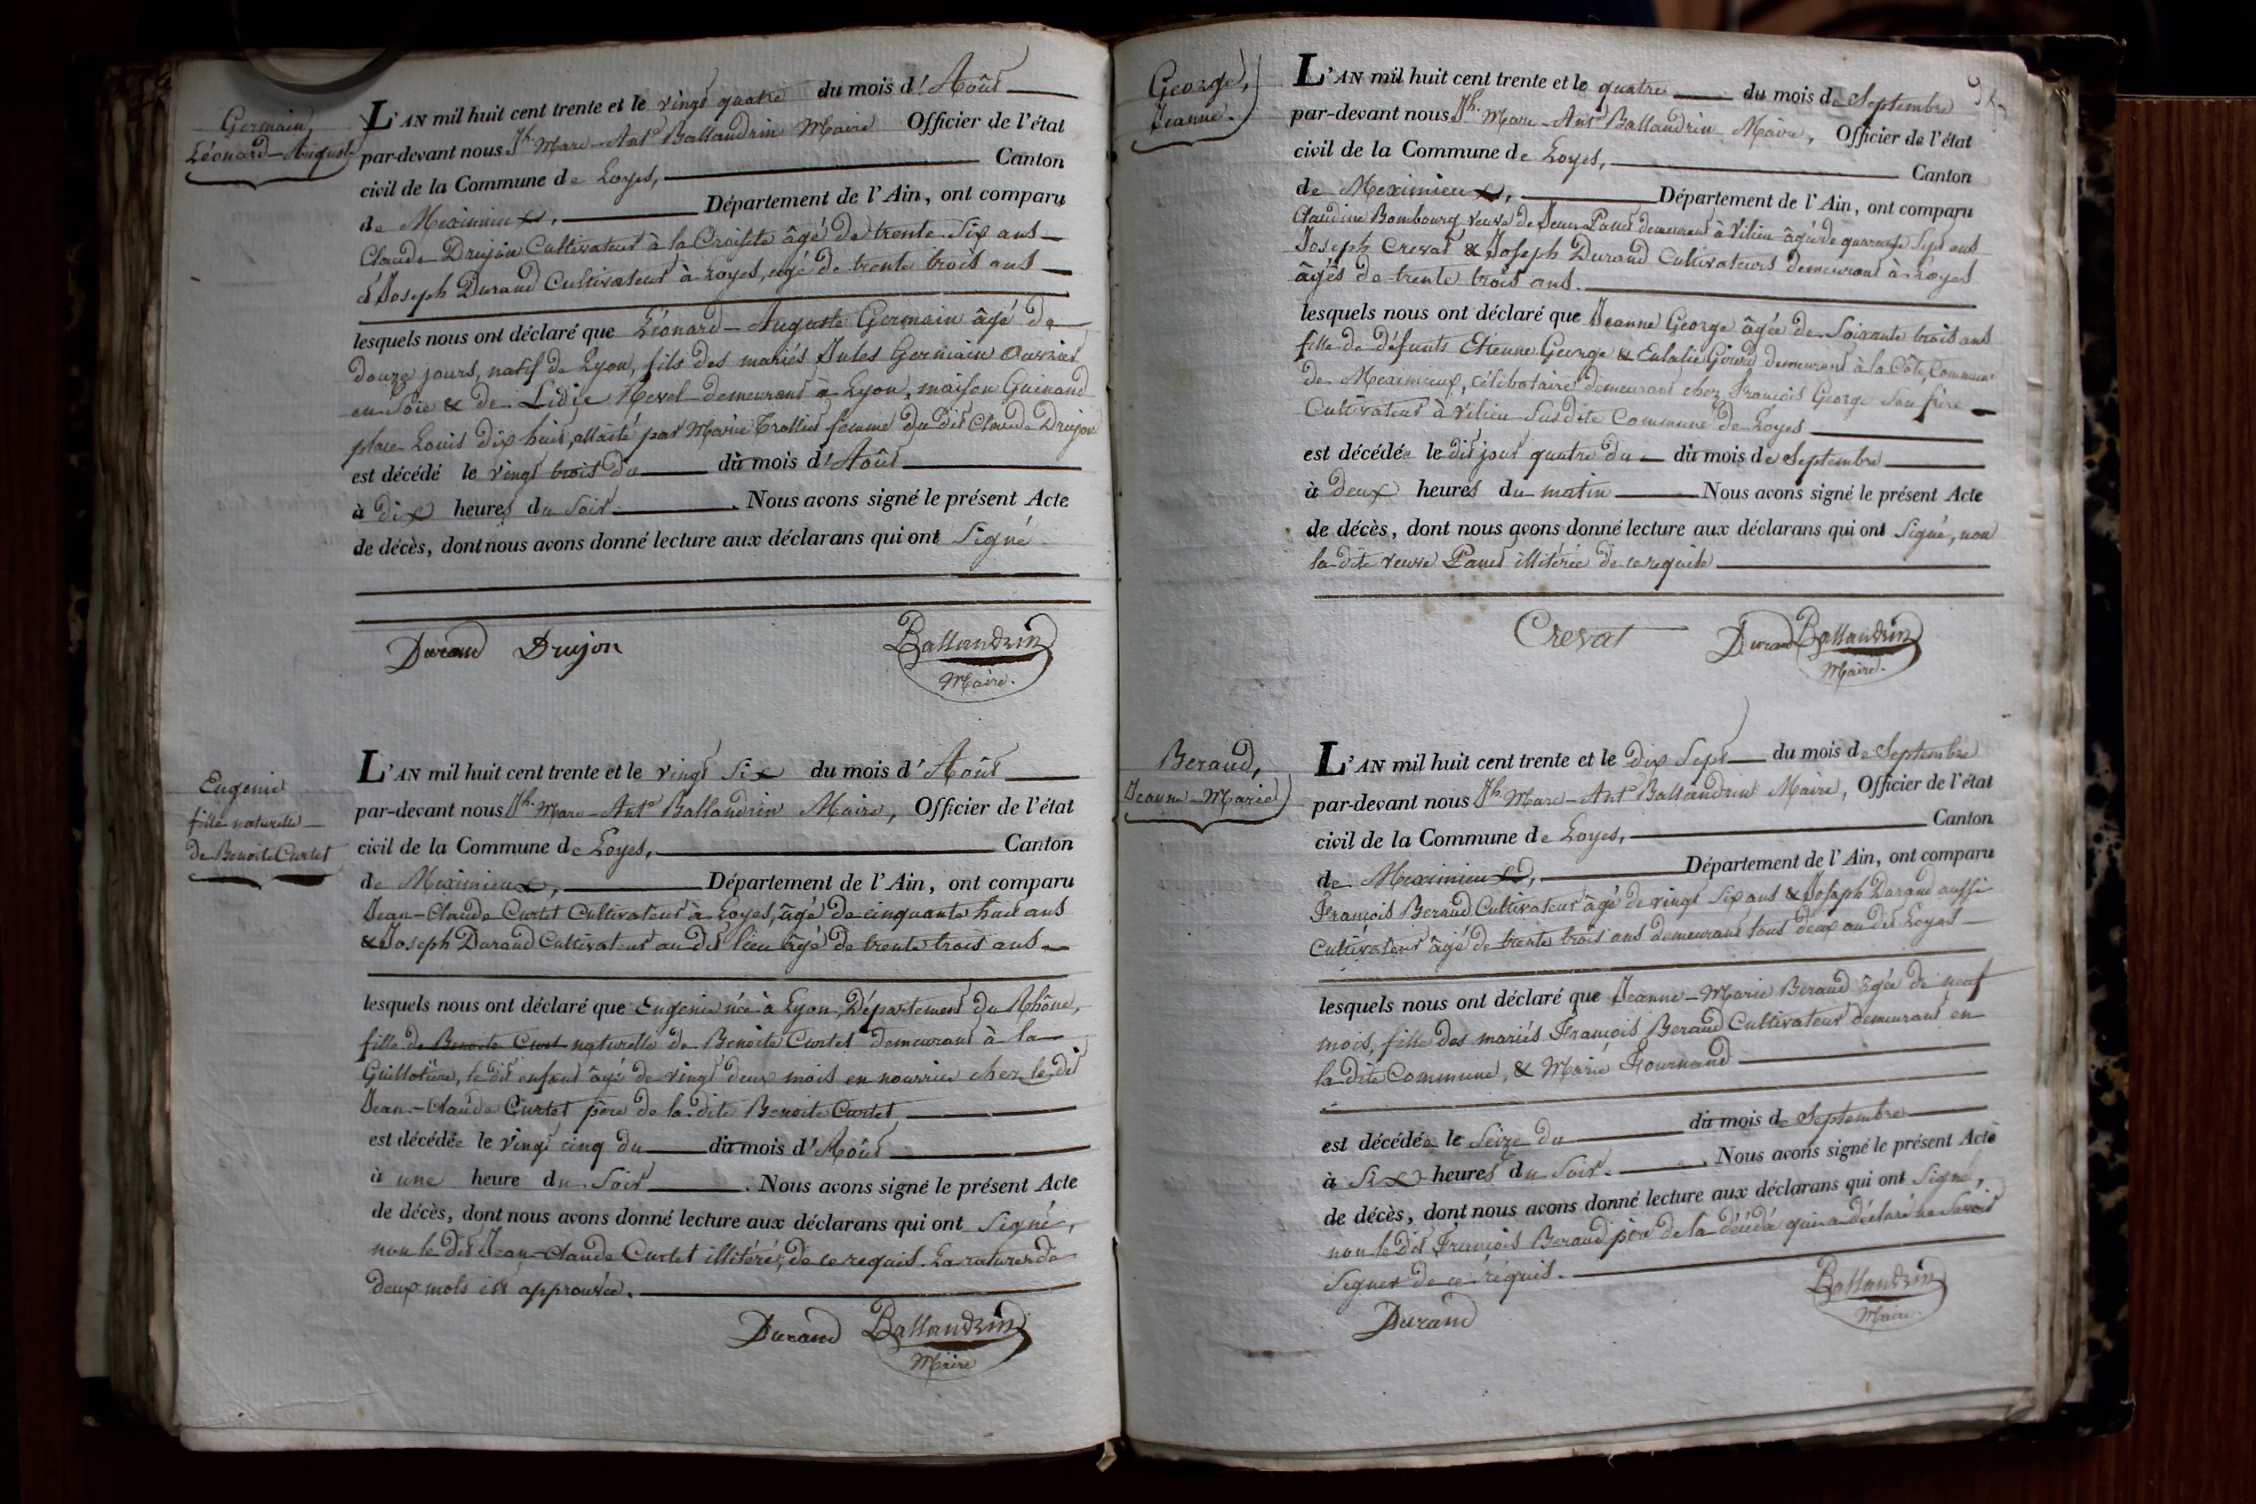 Germain,
Léonard-Auguste
L'AN mil huit cent trente et le vingt quatre du mois d'Août
par-devant nous Jh. Marc-Ant.e Ballandrin Maire Officier de l'état
civil de la Commune de Loyes, Canton
de Meximieux, Département de l'Ain, ont comparu
Claude Drujon Cultivateur à la Croisete âgé de trente Six ans
& Joseph Durand Cultivateur à Loyes, agé de trente trois ans
lesquels nous ont déclaré que Léonard-Auguste Germain âgé de
douze jours, natif de Lyon, fils des mariés Jules Germain Ouvrier
en Soie & de Lidie Revel demeurant à Lyon, maison Guinand
place Louis dix huit, allaité par Marie Trollier femme du dit Claude Drujon
est décédé le vingt trois du du mois d'Août
à dix heures du Soir. Nous avons signé le présent Acte
de décès, dont nous avons donné lecture aux déclarans qui ont Signé
Durand Drujon Ballandrin
Maire.
Eugenie
fille naturelle
de Benoite Curtet
L'AN mil huit cent trente et le vingt Six du mois d'Août
par-devant nous Jh. Marc-Ant.e Ballandrin Maire, Officier de l'état
civil de la Commune de Loyes, Canton
de Meximieux, Département de l'Ain, ont comparu
Jean-Claude Curtet Cultivateur à Loyes, âgé de cinquante huit ans
& Joseph Durand Cultivateur au dit lieu âgé de trente trois ans
lesquels nous ont déclaré que Eugenie née à Lyon, Département du Rhône,
fille de Benoite Curt naturelle de Benoite Curtet demeurant à la
Guillotière, le dit enfant âgé de vingt deux mois en nourrice chez le dit
Jean-Claude Curtet père de la dite Benoite Curtet
est décédée le vingt cinq du du mois d'Août
à une heure du Soir. Nous avons signé le présent Acte
de décès, dont nous avons donné lecture aux déclarans qui ont Signé,
non le dit Jean-Claude Curtet illitéré, de ce requis. La rature de
deux mots est approuvée.
Durand Ballandrin
Maire
George,
Jeanne.
L'AN mil huit cent trente et le quatre du mois de Septembre
par-devant nous Jh. Marc-Ant.e Ballandrin Maire, Officier de l'état
civil de la Commune de Loyes, Canton
de Meximieux, Département de l'Ain, ont comparu
Claudine Bombourg veuve de Jean Panet demeurant à Vilieu âgée de quarante Sept ans
Joseph Crevat & Joseph Durand Cultivateurs demeurant à Loyes
âgés de trente trois ans.
lesquels nous ont déclaré que Jeanne George âgée de Soixante trois ans
fille de défunts Etienne George & Eulalie Girerd demeurant à la Côte, Commune
de Meximieux, célibataire demeurant chez François George Son frère
Cultivateur à Vilieu Susdite Commune de Loyes
est décédée le dit jour quatre du du mois de Septembre
à deux heures du matin Nous avons signé le présent Acte
de décès, dont nous avons donné lecture aux déclarans qui ont Signé, non
la dite veuve Panet illitérée de ce requise
Crevat Durand Ballandrin
Maire.
Beraud,
Jeanne-Marie
L'AN mil huit cent trente et le dix Sept du mois de Septembre
par-devant nous Jh. Marc-Ant.e Ballandrin Maire, Officier de l'état
civil de la Commune de Loyes, Canton
de Meximieux, Département de l'Ain, ont comparu
François Beraud Cultivateur âgé de vingt Six ans & Joseph Durand aussi
Cultivateur âgé de trente trois ans demeurant tous deux au dit Loyes
lesquels nous ont déclaré que Jeanne-Marie Beraud âgée de neuf
mois, fille des mariés François Beraud Cultivateur demeurant en
la dite Commune, & Marie Fournand
est décédée le Seize du du mois de Septembre
à Six heures du Soir. Nous avons signé le présent Acte
de décès, dont nous avons donné lecture aux déclarans qui ont Signé,
non le dit François Beraud père de la décédé qui a déclaré ne Savoir
Signer de ce requis.
Durand Ballandrin
Maire.